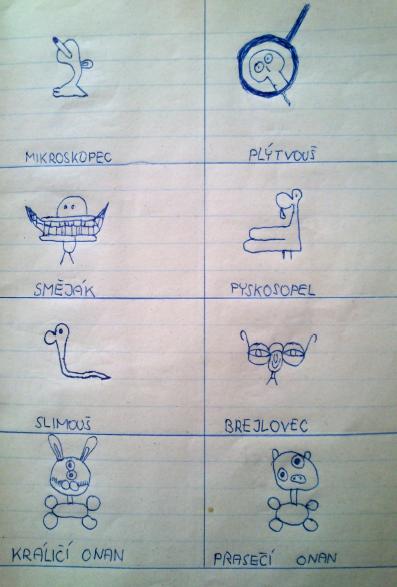 MIKROSKOPEC
PLÝTVOUŠ
SMĚJÁK
PYSKOSOPEL
SLIMOUŠ
BREJLOVEC
KRÁLIČÍ ONAN
PRASEČÍ ONAN